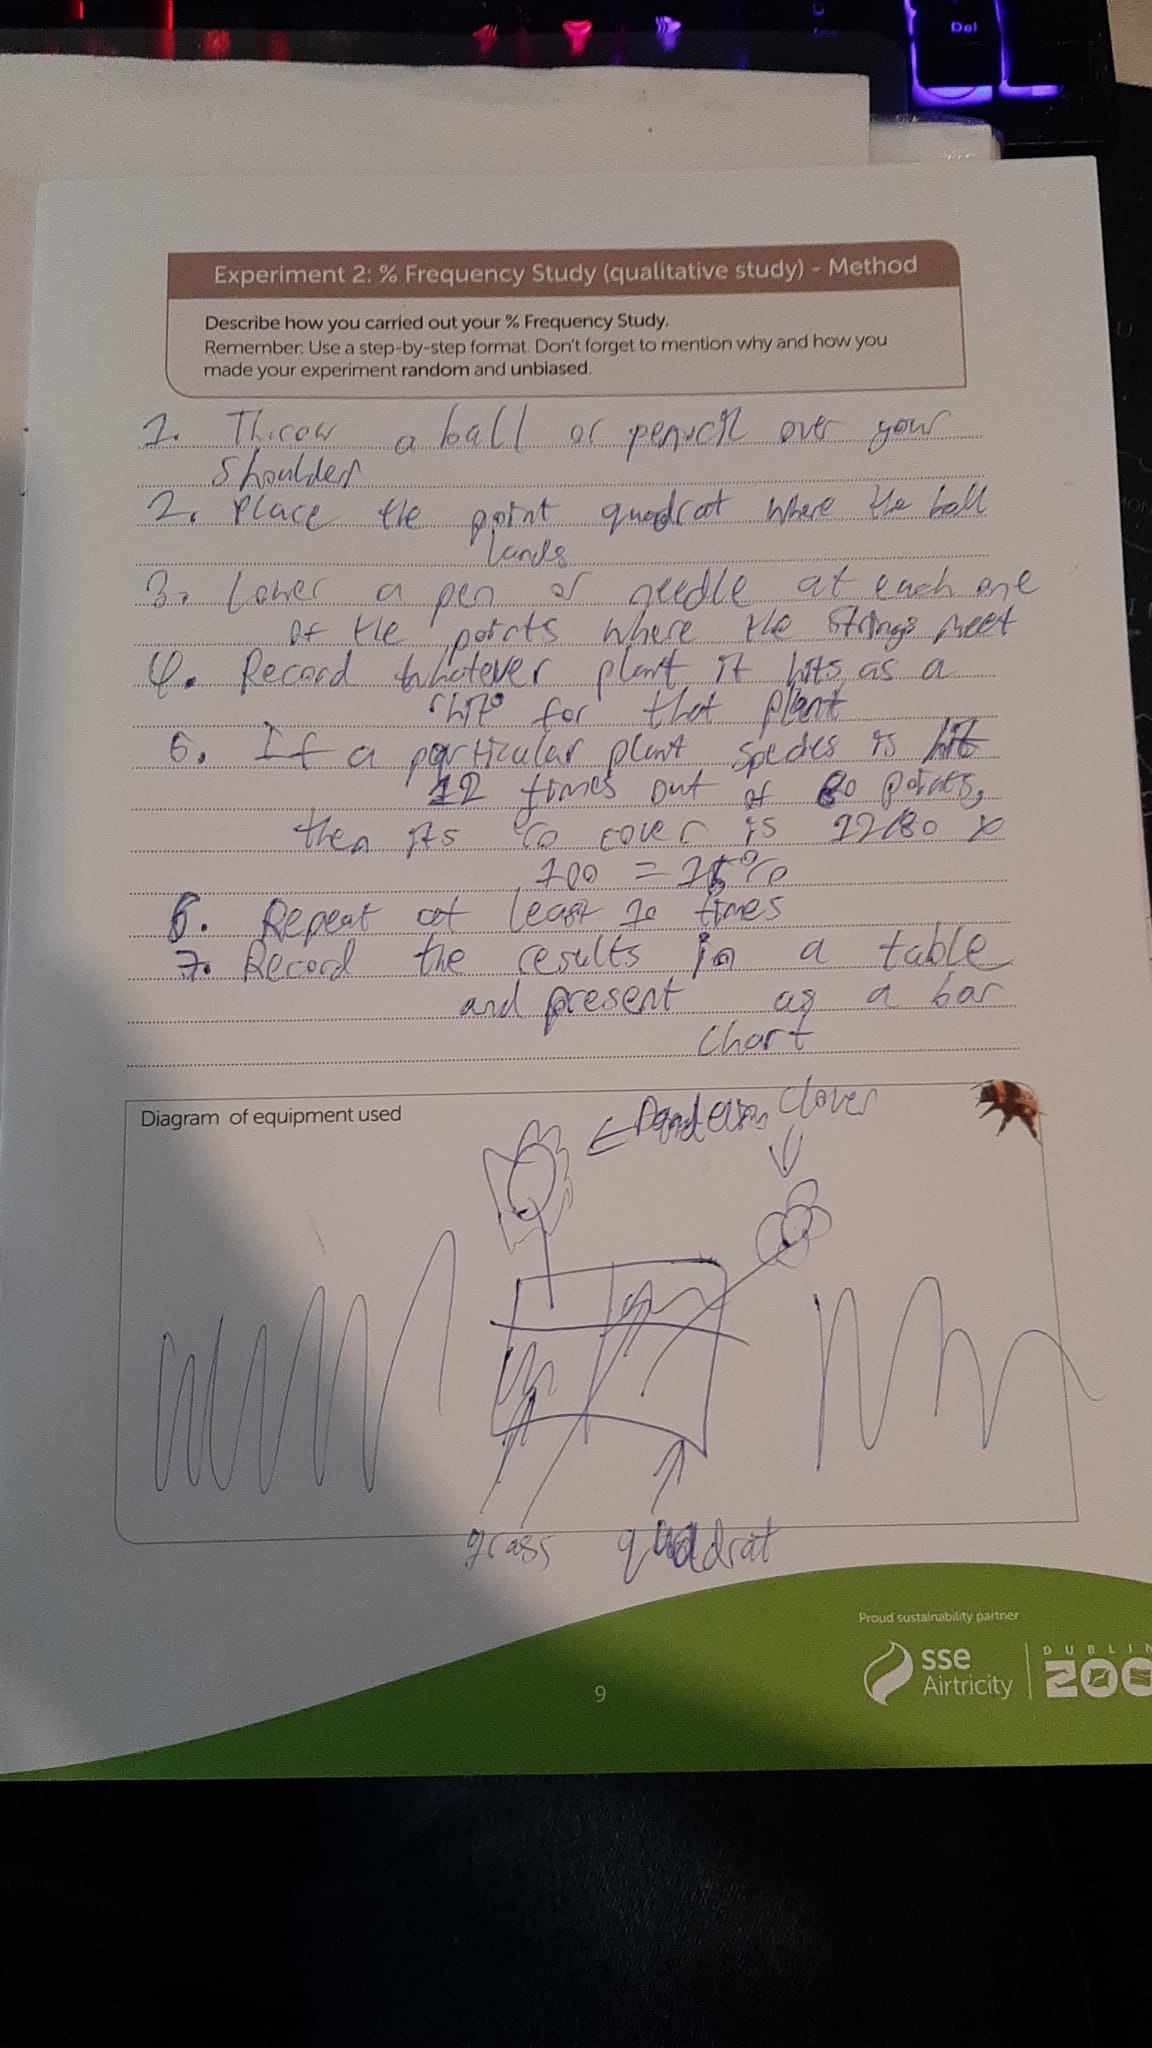 Del
Experiment 2: % Frequency Study (qualitative study) - Method
Describe how you carried out your % Frequency Study.
Remember: Use a step-by-step format. Don't forget to mention why and how you
made your experiment random and unbiased.
1. Throw a ball or pencil over your
shoulder
2. Place the point quadrat where the ball
lands
3. Lower a pen or needle at each one
of the points where the strings meet
4. Record whatever plant it hits as a
"hit" for that plant
5. If a particular plant species is hit
12 times out of 80 points,
then its % cover is 12/80 x
100 = 15%
6. Repeat at least 10 times
7. Record the results in a table
and present as a bar
chart
Diagram of equipment used
Dandelion Clover
grass quadrat
Proud sustainability partner
sse
Airtricity
DUBLIN
ZOO
9